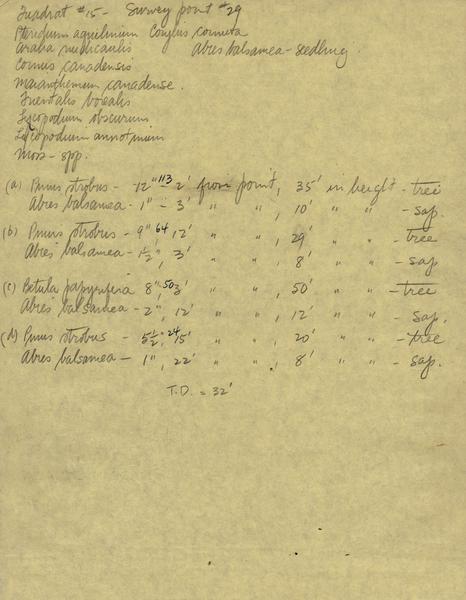 Quadrat #15 - Survey point #29
Pteridium aquilinium Corylus cornuta
Aralia nudicaulis Abies balsamea - seedling.
Cornus canadensis
Maianthemum canadense.
Trientalis borealis
Lycopodium obscurum
Lycopodium annotinum
Moss - spp.
(a) Pinus strobus - 12" 113 2' from point, 35' in height - tree
Abies balsamea - 1" - 3' " ", 10' " " - sap.
(b) Pinus strobus - 9" 64 12' " ", 29' " " - tree
Abies balsamea - 1½", 3' " ", 8' " " - sap
(c) Betula papyrifera 8" 50 3' " ", 50' " " - tree
Abies balsamea - 2", 12' " ", 12' " " - sap.
(d) Pinus strobus - 5½" 24 15' " ", 20' " " - tree
Abies balsamea - 1", 22' " ", 8' " " - sap.
T.D. = 32'